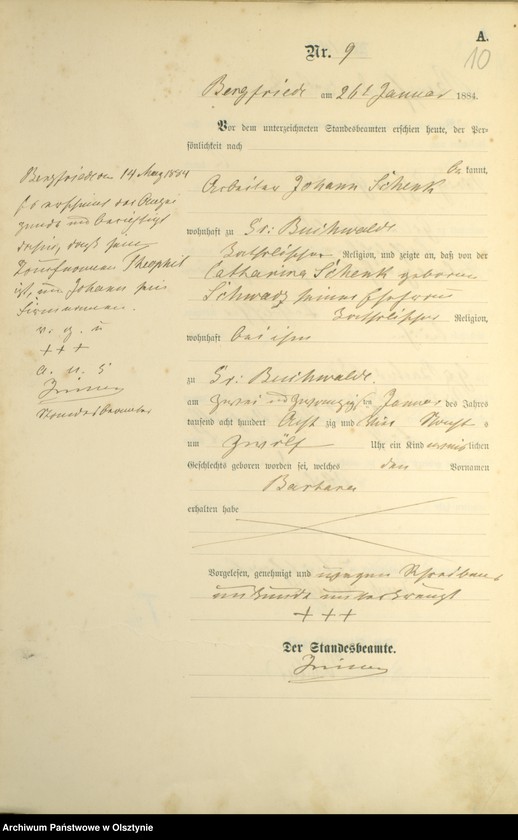 A.
10
Nr. 9
Bergfriede am 26t Januar 1884.
Vor dem unterzeichneten Standesbeamten erschien heute, der Per-
sönlichkeit nach
be kannt,
Arbeiter Johann Schenk
wohnhaft zu Gr: Buchwalde
katholischer Religion, und zeigte an, daß von der
Catharina Schenk geborene
Schwarz seiner Ehefrau
katholischer Religion,
wohnhaft bei ihm
zu Gr: Buchwalde.
am zwei und zwanzigsten Januar des Jahres
tausend acht hundert Acht zig und Vier
um zwölf Uhr ein Kind weiblichen
Geschlechts geboren worden sei, welches den Vornamen
Barbara
erhalten habe
Vorgelesen, genehmigt und wegen Schreibens
unkunde unterkreuzt
+++
Der Standesbeamte.
Bergfriede 14 May 1884
Es erscheint der Anzei
gende und berichtigt
dahin, daß sein
Theophil
ist, und Johann sein
Firmname.
v. g. u
+++
a. u. s
Standesbeamter
Archiwum Państwowe w Olsztynie